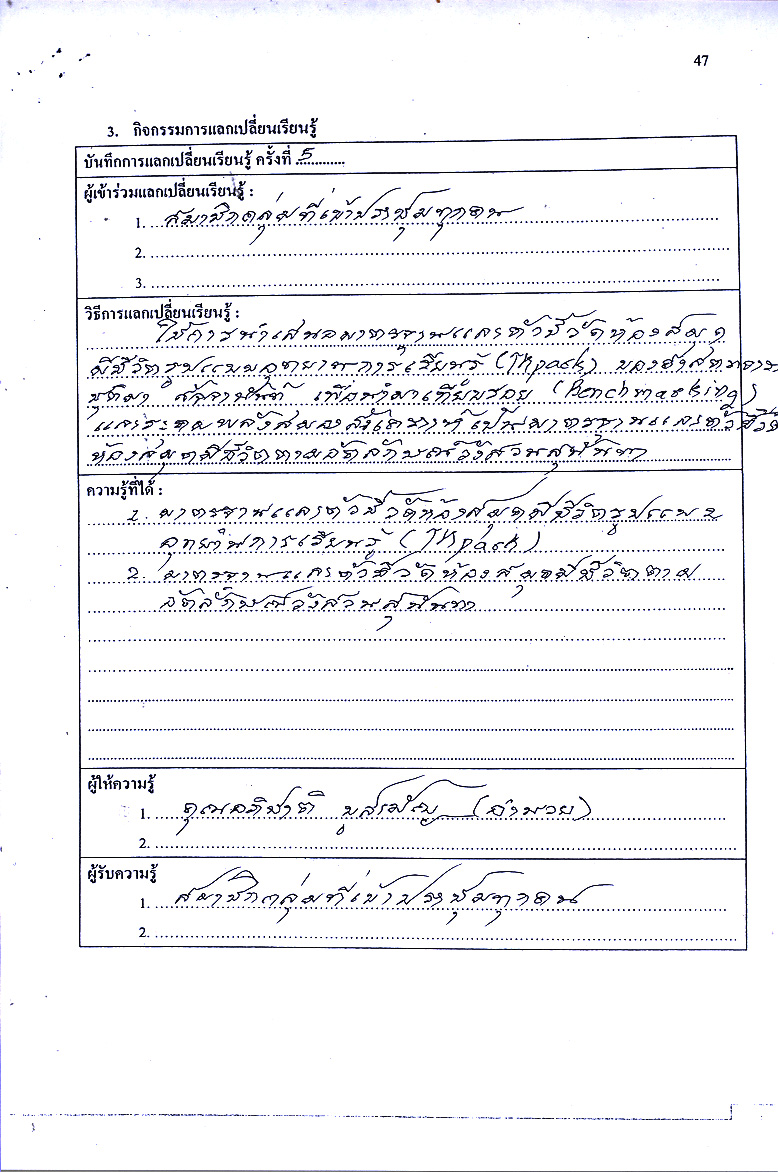 47
3. กิจกรรมการแลกเปลี่ยนเรียนรู้
บันทึกการแลกเปลี่ยนเรียนรู้ ครั้งที่ 5
ผู้เข้าร่วมแลกเปลี่ยนเรียนรู้ :
1. สมาชิกกลุ่มที่เข้าประชุมทุกคน
2.
3.
วิธีการแลกเปลี่ยนเรียนรู้ :
ใช้การนำเสนอมาตรฐานและตัวชี้วัดห้องสมุด
มีชีวิตรูปแบบอุทยานการเรียนรู้ (TKpark) ของ
เพื่อนำมาเทียบรอย (Benchmarking)
และระดมพลังสมองสังเคราะห์เป็นมาตรฐานและตัวชี้วัด
ห้องสมุดมีชีวิตตามอัตลักษณ์วังสวนสุนันทา
ความรู้ที่ได้ :
1. มาตรฐานและตัวชี้วัดห้องสมุดมีชีวิตรูปแบบ
อุทยานการเรียนรู้ (TKpark)
2. มาตรฐานและตัวชี้วัดห้องสมุดมีชีวิตตาม
อัตลักษณ์วังสวนสุนันทา
ผู้ให้ความรู้
1. คุณอภิชาติ (อำนวย)
2.
ผู้รับความรู้
1. สมาชิกกลุ่มที่เข้าประชุมทุกคน
2.